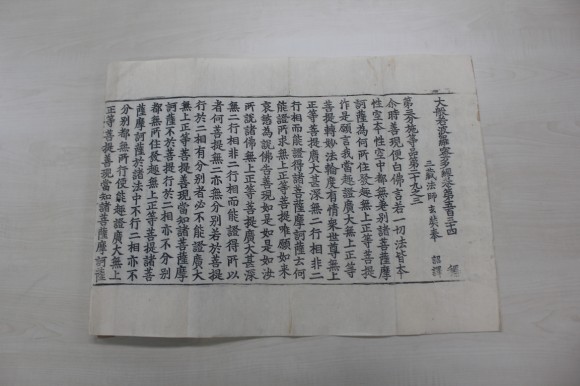 大般若波羅蜜多經卷第五百三十四
三藏法師玄奘奉 詔譯
第三分施等品第二十九之三
尒時善現便白佛言若一切法皆本
性空本性空中都無差別諸菩薩摩
訶薩為何所住發趣無上正等菩提
作是願言我當趣證廣大無上正等
菩提轉妙法輪度有情衆世尊無上
正等菩提廣大甚深無二行相非二
行相而能證得諸菩薩摩訶薩云何
能證所求無上正等菩提唯願如來
哀愍為說佛告善現如是如是如汝
所說諸佛無上正等菩提廣大甚深
無二行相非二行相而能證得所以
者何菩提無二亦無分別若於菩提
行於二相有分別者必不能證廣大
無上正等菩提善現當知諸菩薩摩
訶薩不於菩提行於二相亦不分別
都無所住發趣無上正等菩提諸菩
薩摩訶薩於諸法中不行二相亦不
分別都無所行便能趣證廣大無上
正等菩提善現當知諸菩薩摩訶薩